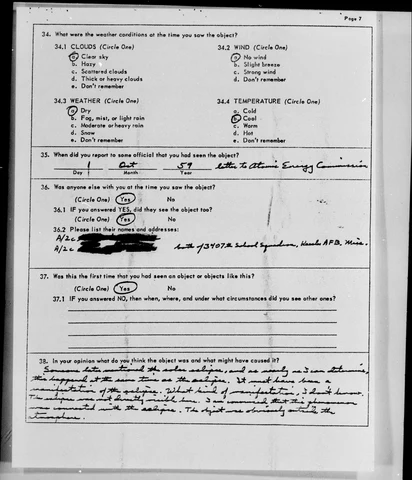 Page 7
34. What were the weather conditions at the time you saw the object?
34.1 CLOUDS (Circle One) 34.2 WIND (Circle One)
a. Clear sky a. No wind
b. Hazy b. Slight breeze
c. Scattered clouds c. Strong wind
d. Thick or heavy clouds d. Don't remember
e. Don't remember
34.3 WEATHER (Circle One) 34.4 TEMPERATURE (Circle One)
a. Dry a. Cold
b. Fog, mist, or light rain b. Cool
c. Moderate or heavy rain c. Warm
d. Snow d. Hot
e. Don't remember e. Don't remember
35. When did you report to some official that you had seen the object?
1 Oct 59 letter to Atomic Energy Commission
Day Month Year
36. Was anyone else with you at the time you saw the object?
(Circle One) Yes No
36.1 IF you answered YES, did they see the object too?
(Circle One) Yes No
36.2 Please list their names and addresses:
A/2c
A/2c both of 3407th School Squadron, Keesler AFB, Miss.
37. Was this the first time that you had seen an object or objects like this?
(Circle One) Yes No
37.1 IF you answered NO, then when, where, and under what circumstances did you see other ones?
38. In your opinion what do you think the object was and what might have caused it?
Someone later mentioned the solar eclipse, and as nearly as I can determine,
this happened at the same time as the eclipse. It must have been a
manifestation of the eclipse. What kind of manifestation, I don't know.
The eclipse was not directly visible here. I am convinced that this phenomenon
was connected with the eclipse. The object was obviously outside the
atmosphere.